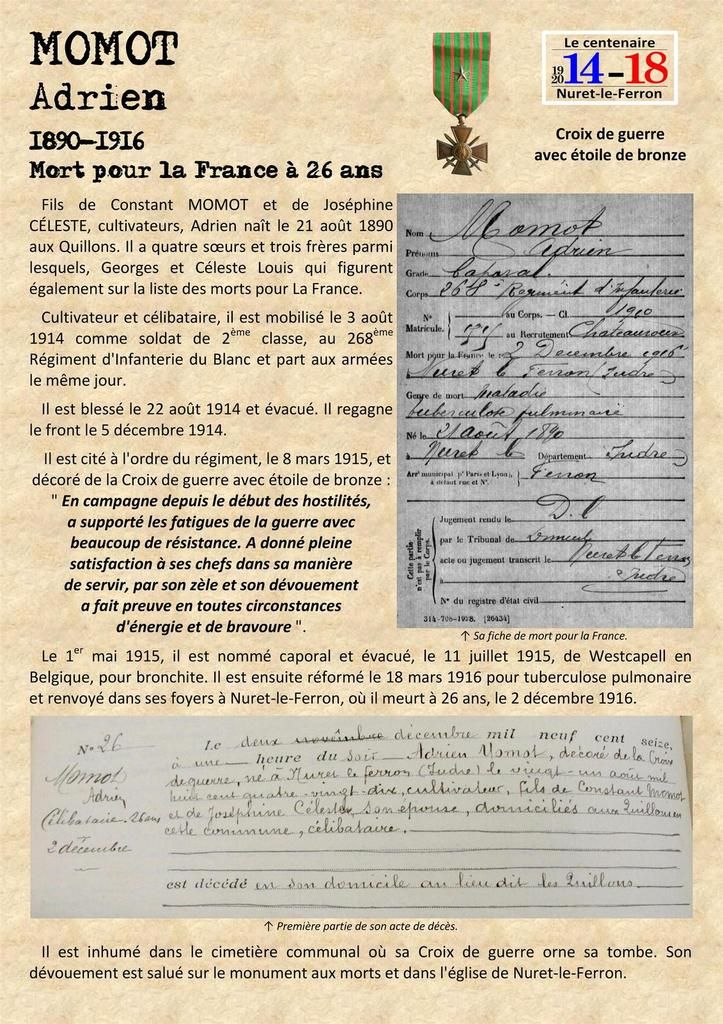 MOMOT
Adrien
1890–1916
Mort pour la France à 26 ans
Le centenaire
19 20 14–18
Nuret-le-Ferron
Croix de guerre
avec étoile de bronze
Fils de Constant MOMOT et de Joséphine
CÉLESTE, cultivateurs, Adrien naît le 21 août 1890
aux Quillons. Il a quatre sœurs et trois frères parmi
lesquels, Georges et Céleste Louis qui figurent
également sur la liste des morts pour La France.
Cultivateur et célibataire, il est mobilisé le 3 août
1914 comme soldat de 2ème classe, au 268ème
Régiment d'Infanterie du Blanc et part aux armées
le même jour.
Il est blessé le 22 août 1914 et évacué. Il regagne
le front le 5 décembre 1914.
Il est cité à l'ordre du régiment, le 8 mars 1915, et
décoré de la Croix de guerre avec étoile de bronze :
" En campagne depuis le début des hostilités,
a supporté les fatigues de la guerre avec
beaucoup de résistance. A donné pleine
satisfaction à ses chefs dans sa manière
de servir, par son zèle et son dévouement
a fait preuve en toutes circonstances
d'énergie et de bravoure ".
Nom Momot
Prénoms Adrien
Grade Caporal
Corps 268e Régiment d'Infanterie
N° au Corps. — Cl. 1910
Matricule. au Recrutement Châteauroux
Mort pour la France le 2 Décembre 1916
à Nuret le Ferron (Indre)
Genre de mort Maladie
tuberculose pulmonaire
Né le 21 août 1890
à Nuret le Département Indre
Arrt municipal (pr Paris et Lyon), à défaut rue et N°. Ferron
Cette partie n'est pas à remplir par le Corps.
Jugement rendu le D.C
par le Tribunal de
acte ou jugement transcrit le Nuret le Ferron
à Indre
N° du registre d'état civil
314-708-1928. [26434]
↑ Sa fiche de mort pour la France.
Le 1er mai 1915, il est nommé caporal et évacué, le 11 juillet 1915, de Westcapell en
Belgique, pour bronchite. Il est ensuite réformé le 18 mars 1916 pour tuberculose pulmonaire
et renvoyé dans ses foyers à Nuret-le-Ferron, où il meurt à 26 ans, le 2 décembre 1916.
N° 26
Momot
Adrien
Célibataire. 26 ans
2 décembre
Le deux novembre décembre mil neuf cent seize,
à une heure du soir Adrien Momot, décoré de la Croix
de guerre, né à Nuret le ferron (Indre) le vingt-un août mil
huit cent quatre-vingt-dix, cultivateur, fils de Constant Momot
et de Joséphine Céleste, son épouse, domiciliés aux Quillons en
cette commune, célibataire.
est décédé en son domicile au lieu dit les Quillons
↑ Première partie de son acte de décès.
Il est inhumé dans le cimetière communal où sa Croix de guerre orne sa tombe. Son
dévouement est salué sur le monument aux morts et dans l'église de Nuret-le-Ferron.